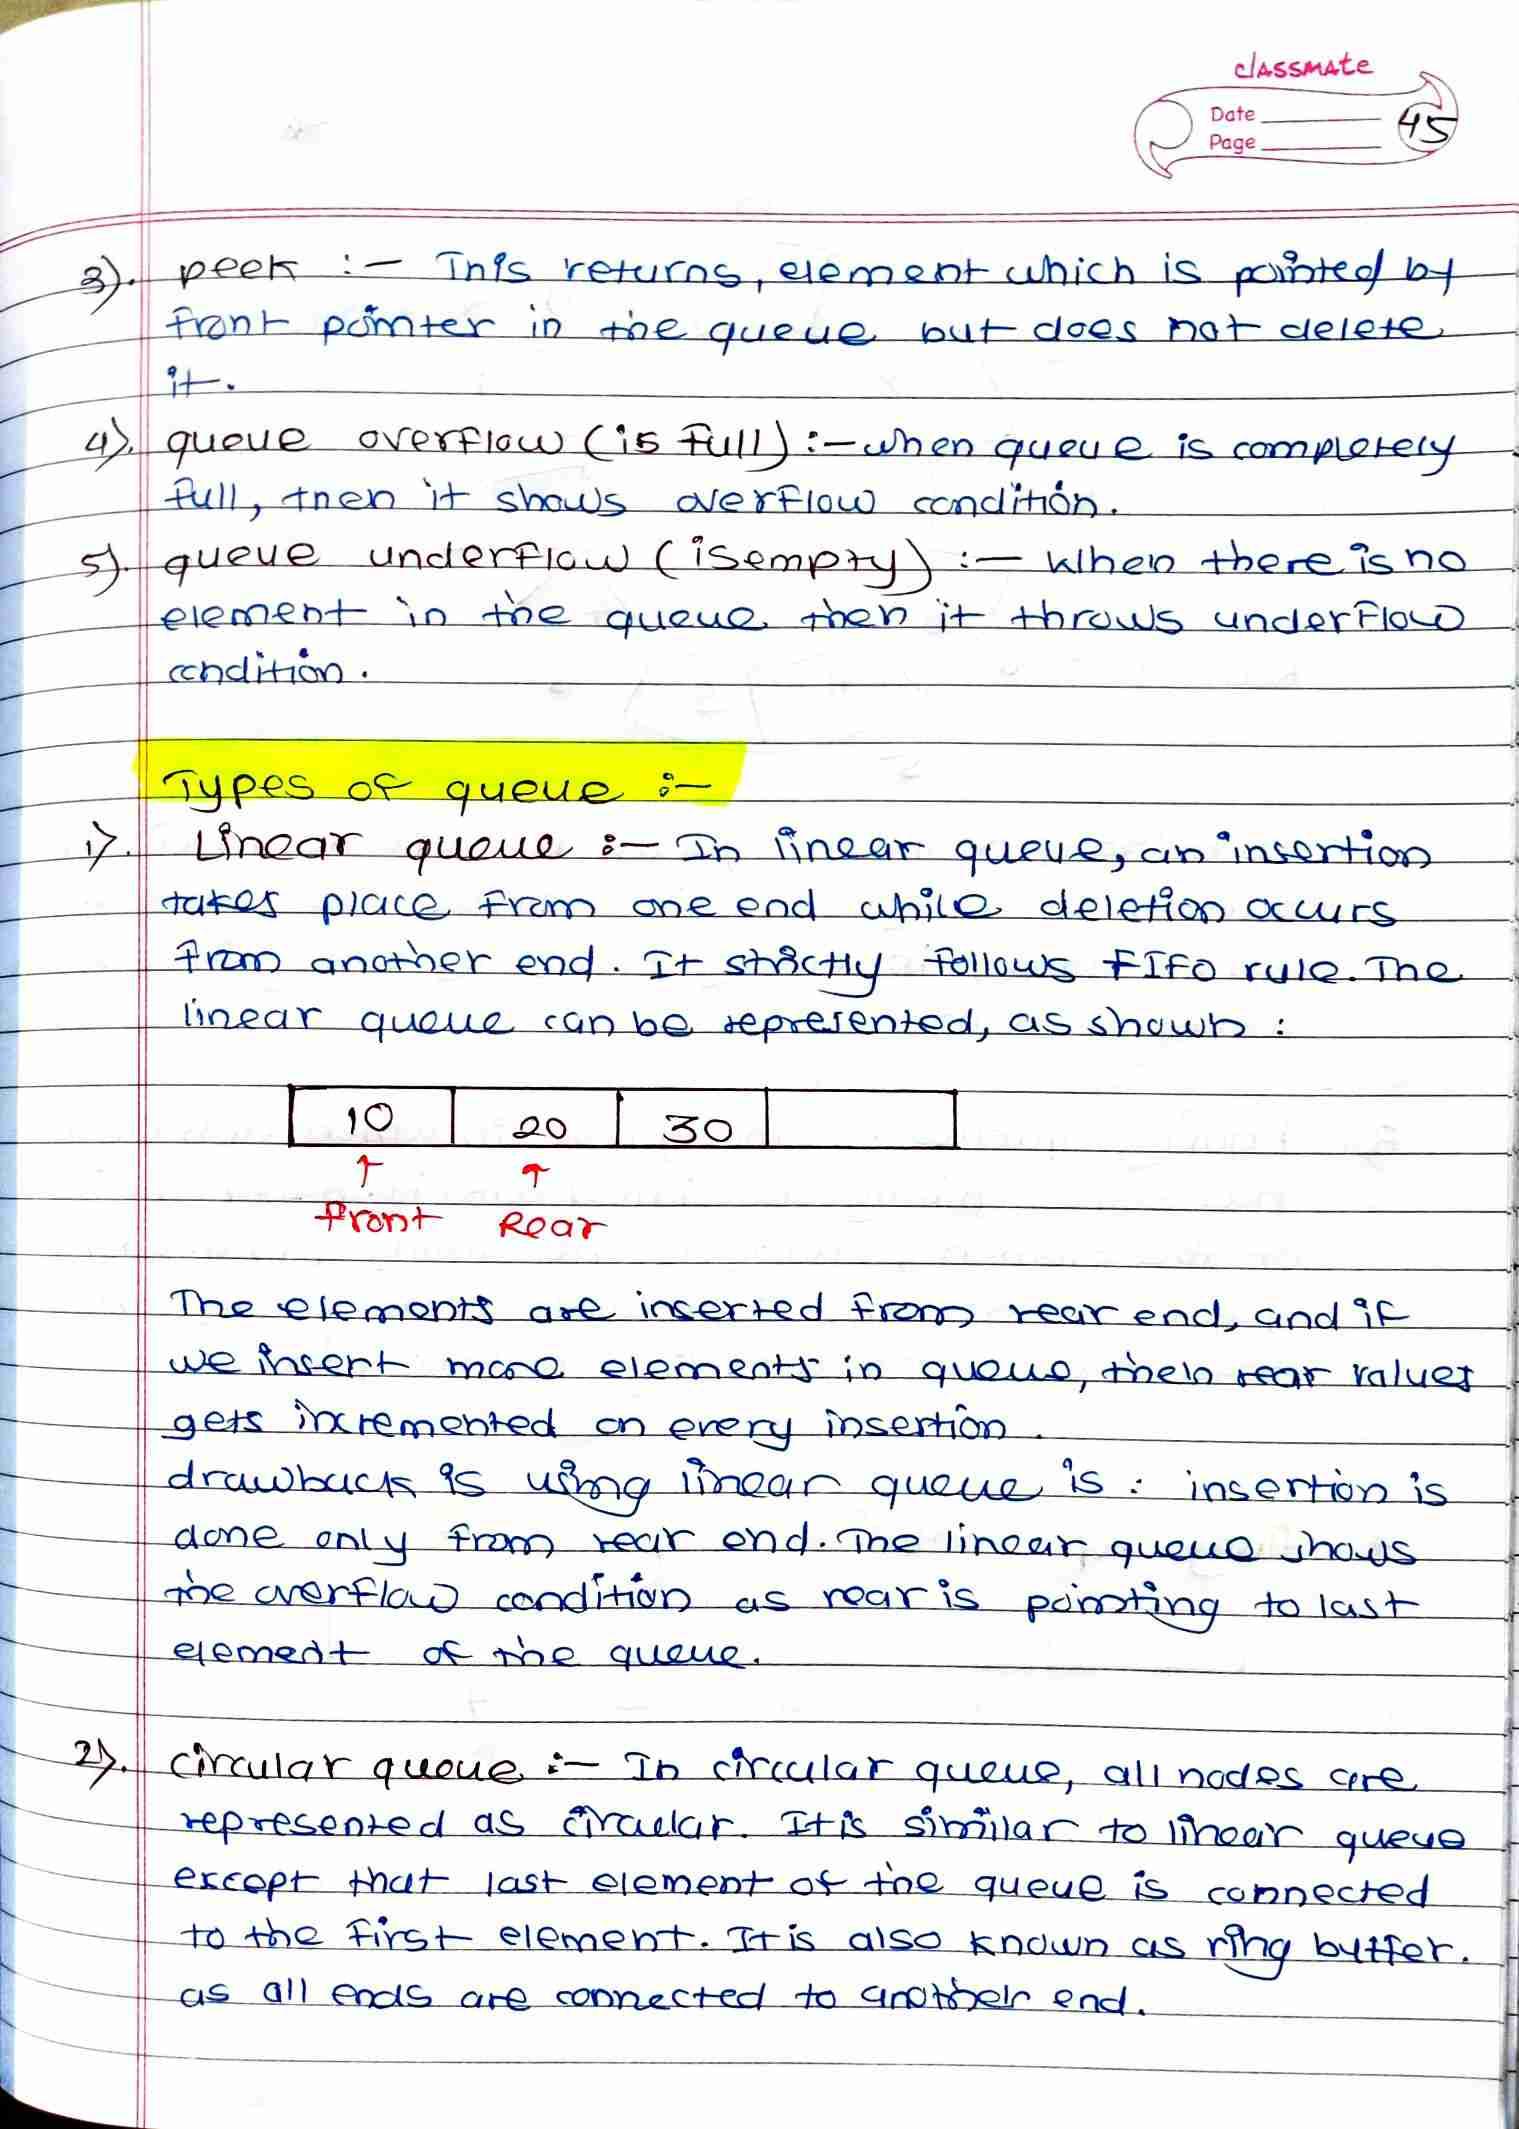 classmate
Date
Page
45
3). peek :- This returns, element which is pointed by
front pointer in the queue but does not delete
it.
4). queue overflow (is full) :- when queue is completely
full, then it shows overflow condition.
5). queue underflow (isempty) :- When there is no
element in the queue then it throws underflow
condition.
Types of queue :-
1). Linear queue :- In linear queue, an insertion
takes place from one end while deletion occurs
from another end. It strictly follows FIFO rule. The
linear queue can be represented, as shown :
10 20 30
↑ ↑
front Rear
The elements are inserted from rear end, and if
we insert more elements in queue, then rear values
gets incremented on every insertion.
drawback is using linear queue is : insertion is
done only from rear end. The linear queue shows
the overflow condition as rear is pointing to last
element of the queue.
2). circular queue :- In circular queue, all nodes are
represented as circular. It is similar to linear queue
except that last element of the queue is connected
to the first element. It is also known as ring buffer.
as all ends are connected to another end.